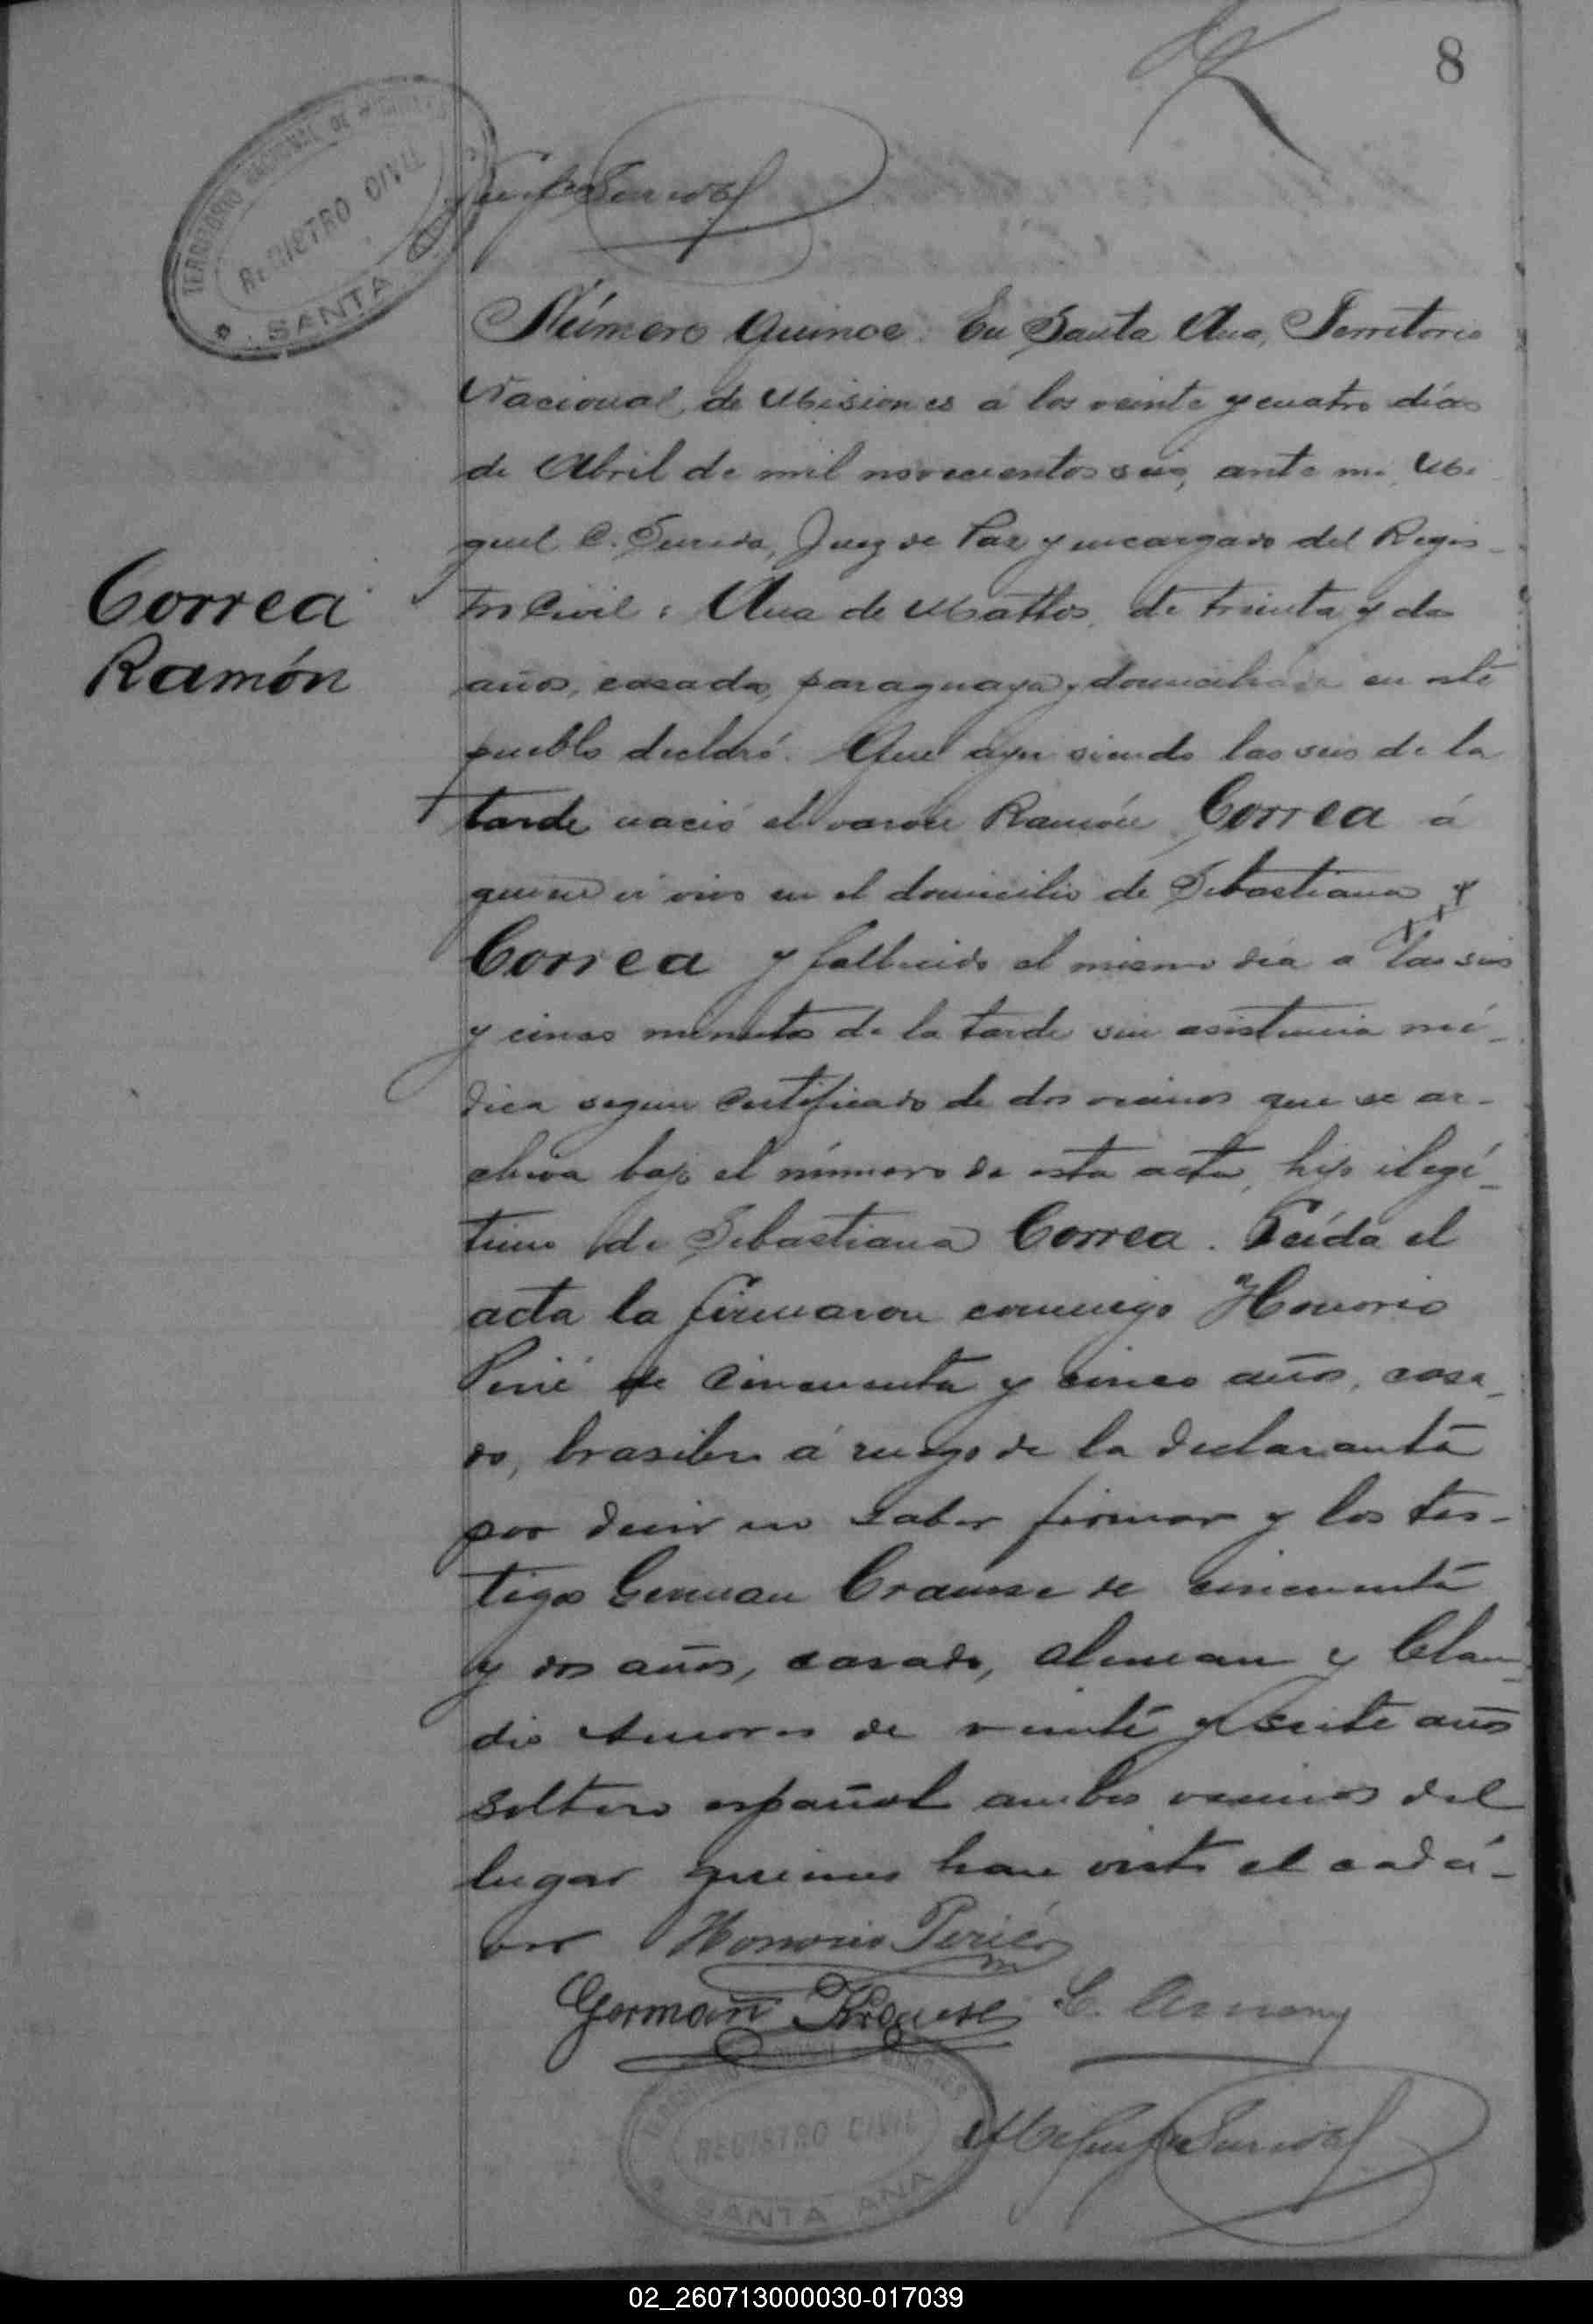 8
TERRITORIO NACIONAL DE MISIONES
REGISTRO CIVIL
SANTA
Número Quince. En Santa Ana, Territorio
Nacional de Misiones á los veinte y cuatro días
de Abril de mil novecientos seis, ante mi, Mi-
guel C. Sureda, Juez de Paz y encargado del Regis-
tro Civil: Ana de Mattos, de treinta y dos
años, casada, paraguaya y domiciliada en este
pueblo declaró: Que ayer siendo las seis de la
tarde nació el varón Ramón Correa á
quien vi vivo en el domicilio de Sebastiana
Correa y fallecido el mismo día a las seis
y cinco minutos de la tarde sin asistencia mé-
dica segun certificado de dos vecinos que se ar-
chiva bajo el número de esta acta, hijo ilegí-
timo de Sebastiana Correa. Leída el
acta la firmaron conmigo Honorio
Perié de cincuenta y cinco años, casa-
do, brasilero á ruego de la declarante
por decir no saber firmar y los tes-
tigos German Crausse de cincuenta
y dos años, casado, aleman y Clau-
dio de veinte y siete años
soltero español ambos vecinos del
lugar quienes han visto el cadá-
ver
Correa
Ramón
Honorio Perié
German Krausse C.
REGISTRO CIVIL
SANTA ANA
Miguel C. Sureda
02_260713000030-017039